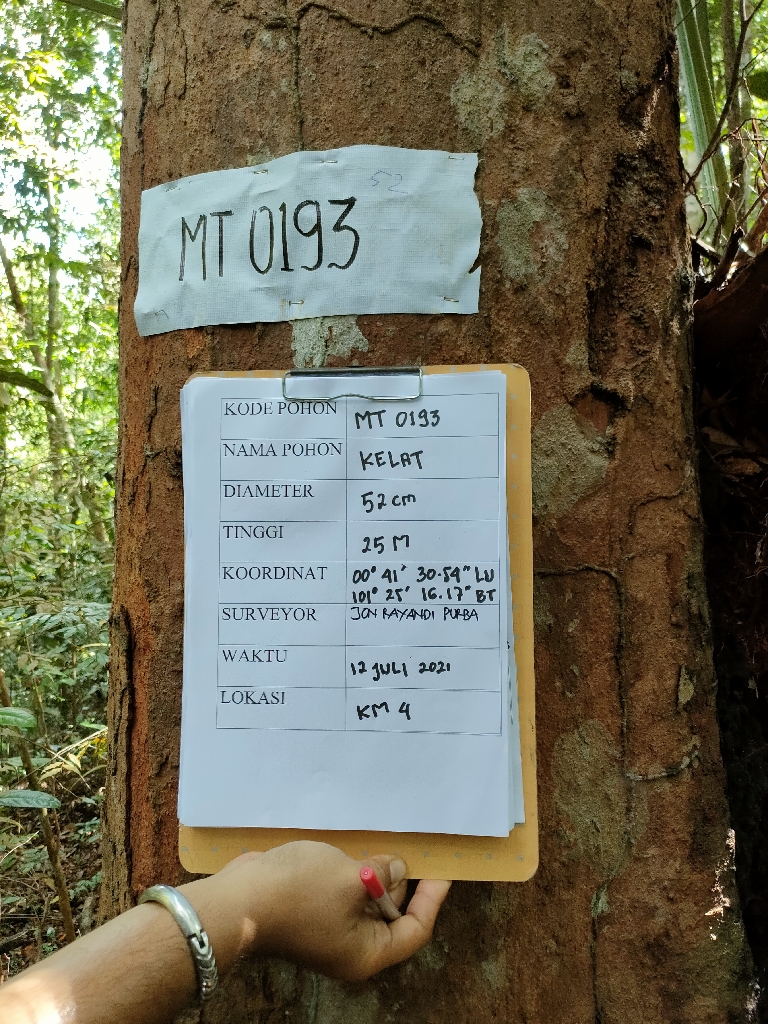 52
MT 0193
KODE POHON MT 0193
NAMA POHON KELAT
DIAMETER 52 cm
TINGGI 25 M
KOORDINAT 00° 41' 30.54" LU
101° 25' 16.17" BT
SURVEYOR JON RAYANDI PURBA
WAKTU 12 JULI 2021
LOKASI KM 4